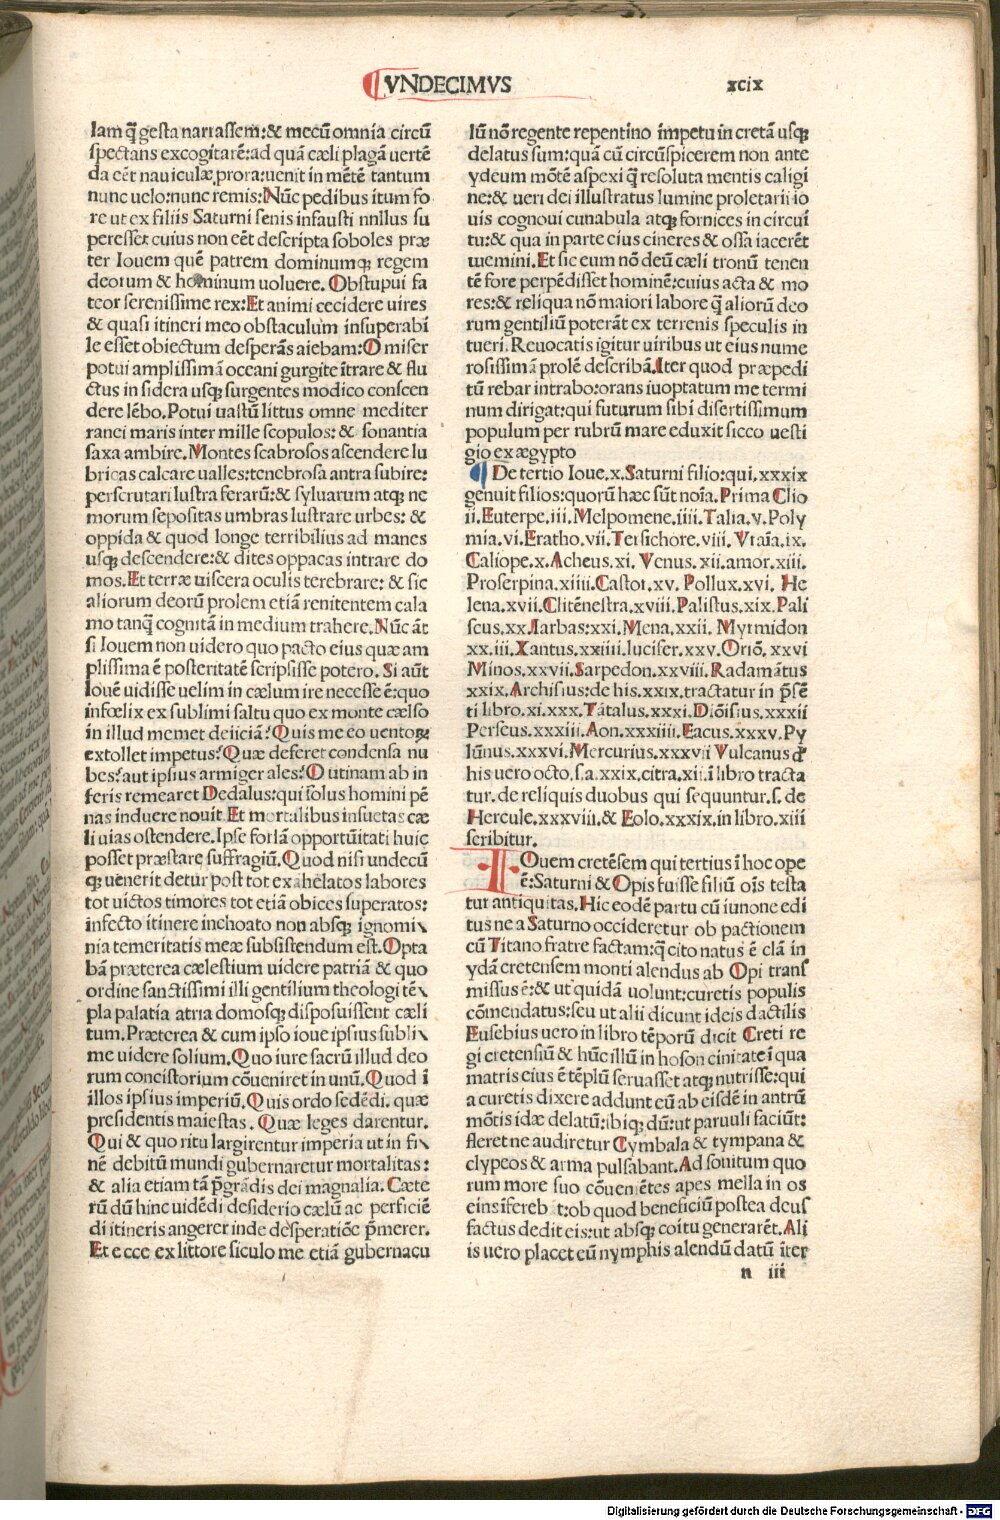 VNDECIMVS
xcix
lam q̃ gesta narrassem:& mecũ omnia circũ
spectans excogitarẽ:ad quã cæli plagã uertẽ
da eẽt nauiculæ,prora:uenit in mẽtẽ tantum
nunc uelo:nunc remis:Nũc pedibus itum fo
re ut ex filiis Saturni senis infausti nnllus su
peresset cuius non eẽt descripta soboles præ
ter Iouem quẽ patrem dominumqꝫ regem
deorum & hominum uoluere. Obstupui fa
teor serenissime rex:Et animi cecidere uires
& quasi itineri meo obstaculum insuperabi
le esset obiectum desperãs aiebam:O miser
potui amplissimã oceani gurgite ĩtrare & flu
ctus in sidera usqꝫ surgentes modico conscen
dere lẽbo.Potui uastũ littus omne mediter
ranei maris inter mille scopulos: & sonantia
saxa ambire.Montes scabrosos ascendere lu
bricas calcare ualles:tenebrosa antra subire:
perscrutari lustra ferarũ:& syluarum atqꝫ ne
morum sepositas umbras lustrare urbes: &
oppida & quod longe terribilius ad manes
usqꝫ descendere:& dites oppacas intrare do
mos.Et terræ uiscera oculis terebrare: & sic
aliorum deorũ prolem etiã renitentem cala
mo tanq̃ cognitã in medium trahere.Nũc ãt
si Iouem non uidero quo pacto eius quæ am
plissima ẽ posteritatẽ scripsisse potero. Si aũt
Iouẽ uidisse uelim in cælum ire necesse ẽ:quo
infœlix ex sublimi saltu quo ex monte cælso
in illud memet deiiciã? Quis me eo uentoꝝ
extollet impetus? Quæ deferet condensa nu
bes?aut ipsius armiger ales? O utinam ab in
feris remearet Dedalus:qui solus homini pẽ
nas induere nouit. Et mortalibus insuetas cæ
li uias ostendere. Ipse forsã opportũitati huic
posset præstare suffragiũ. Quod nisi undecũ
qꝫ uenerit detur post tot exahelatos labores
tot uictos timores tot etiã obices superatos:
infecto itinere inchoato non absqꝫ ignomi
nia temeritatis meæ subsistendum est.Opta
bã præterea cælestium uidere patriã & quo
ordine sanctissimi illi gentilium theologi tẽ
pla palatia atria domosqꝫ disposuissent cæli
tum.Præterea & cum ipso ioue ipsius subli
me uidere solium. Quo iure sacrũ illud deo
rum concistorium cõueniret in unũ. Quod ĩ
illos ipsius imperiũ. Quis ordo sedẽdi. quæ
presidentis maiestas. Quæ leges darentur.
Qui & quo ritu largirentur imperia ut in fi
nẽ debitũ mundi gubernaretur mortalitas:
& alia etiam tã p̃grãdis dei magnalia. Cæte
rũ dũ hinc uidẽdi desiderio cælũ ac perficiẽ
di itineris angerer inde desperatiõe p̃merer.
Et ecce ex littore siculo me etiã gubernacu
lũ nõ regente repentino impetu in cretã usqꝫ
delatus sum:quã cũ circũspicerem non ante
ydeum mõtẽ aspexi q̃ resoluta mentis caligi
ne:& ueri dei illustratus lumine proletarii io
uis cognoui cunabula atqꝫ fornices in circui
tu:& qua in parte eius cineres & ossa iacerẽt
memini.Et sic eum nõ deũ cæli tronũ tenen
tẽ fore perpẽdisset hominẽ:cuius acta & mo
res:& reliqua nõ maiori labore q̃ aliorũ deo
rum gentiliũ poterãt ex terrenis speculis in
tueri. Reuocatis igitur uiribus ut eius nume
rosissimã prolẽ describã.Iter quod præpedi
tũ rebar intrabo:orans iuoptatum me termi
num dirigat:qui futurum sibi disertissimum
populum per rubrũ mare eduxit sicco uesti
gio ex ægypto
De tertio Ioue.x.Saturni filio:qui.xxxix
genuit filios:quorũ hæc sũt noĩa.Prima Clio
ii.Euterpe.iii.Melpomene.iiii.Talia.v.Poly
mia.vi.Eratho.vii.Tersichore.viii. Vraĩa.ix.
Caliope.x.Acheus.xi. Venus.xii.amor.xiii.
Proserpina.xiiii.Castor.xv. Pollux.xvi. He
lena.xvii.Clitẽnestra.xviii.Palistus.xix.Pali
scus.xx.Iarbas:xxi.Mena.xxii. Myrmidon
xx.iii.Xantus.xxiiii.luciser.xxv.Oriõ.xxvi
Minos.xxvii.Sarpedon.xxviii.Radamãtus
xxix.Archisius:de his.xxix.tractatur in p̃sẽ
ti libro.xi.xxx.Tãtalus.xxxi.Diõisius.xxxii
Perseus.xxxiii.Aon.xxxiiii.Eacus.xxxv.Py
lũnus.xxxvi.Mercurius.xxxvii Vulcanus ꝗ̃
his uero octo.s.a.xxix.citra.xii.ĩ libro tracta
tur. de reliquis duobus qui sequuntur.s. de
Hercule.xxxviii.& Eolo.xxxix.in libro.xiii
scribitur.
IOuem cretẽsem qui tertius ĩ hoc ope
ẽ:Saturni & Opis fuisse filiũ oĩs testa
tur antiquitas.Hic eodẽ partu cũ iunone edi
tus ne a Saturno occideretur ob pactionem
cũ Titano fratre factam:q̃ cito natus ẽ clã in
ydã cretensem monti alendus ab Opi trans
missus ẽ:& ut quidã uolunt:curetis populis
cõmendatus:seu ut alii dicunt ideis dactilis
Eusebius uero in libro tẽporũ dicit Creti re
gi cretensiũ & hũc illũ in hoson ciuitate ĩ qua
matris eius ẽ tẽplũ seruasset atqꝫ nutrisse:qui
a curetis dixere addunt eũ ab eisdẽ in antrũ
mõtis idæ delatũ:ibiqꝫ dũ:ut paruuli faciũt:
fleret ne audiretur Cymbala & tympana &
clypeos & arma pulsabant.Ad sonitum quo
rum more suo cõueniẽtes apes mella in os
eins ĩfereb t:ob quod beneficiũ postea deus
factus dedit eis:ut absqꝫ coitu generarẽt.Ali
is uero placet eũ nymphis alendũ datũ ĩter
n iii
Digitalisierung gefördert durch die Deutsche Forschungsgemeinschaft - DFG